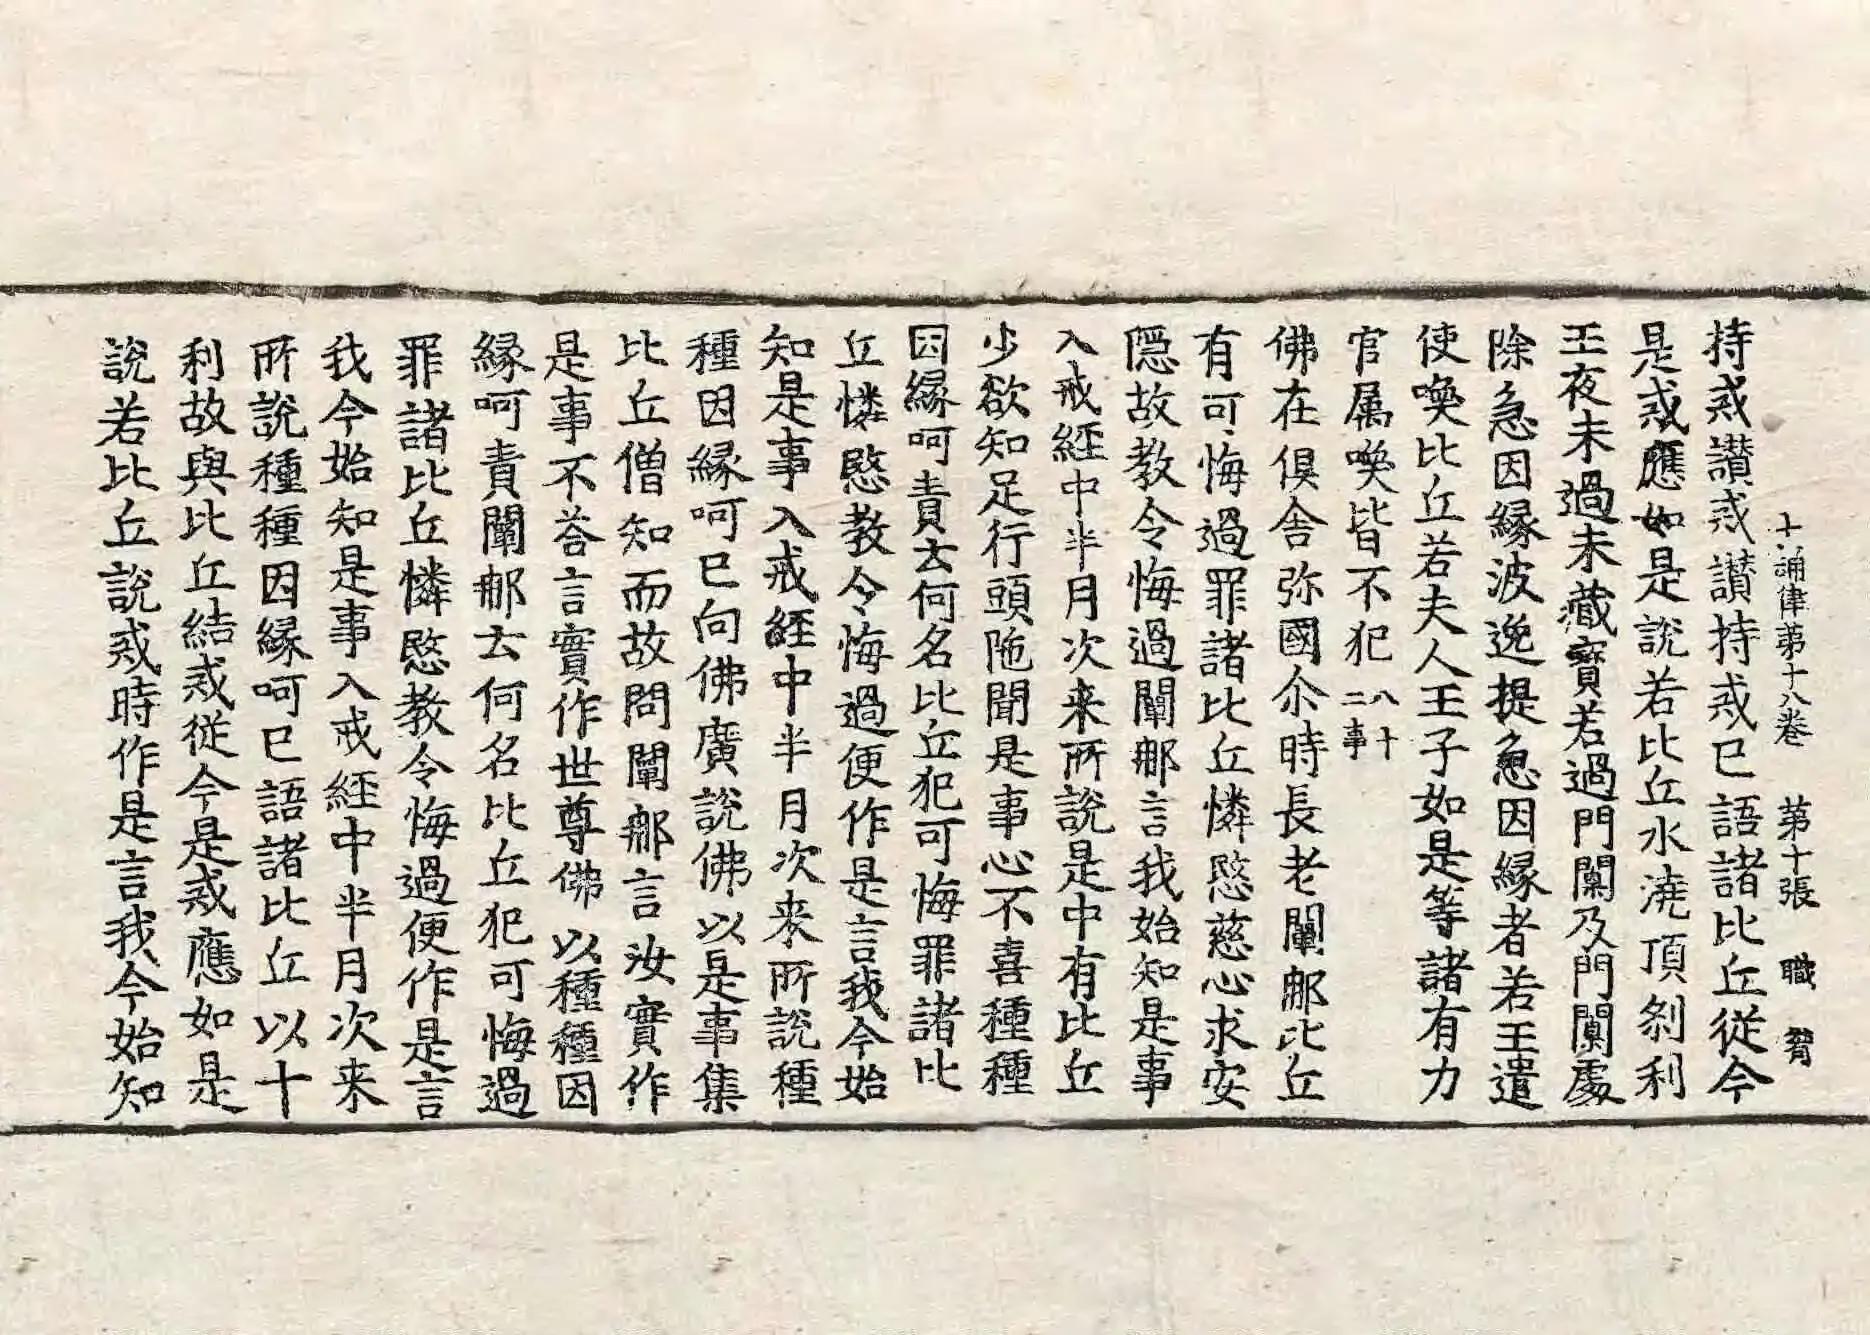 十誦律第十八卷 第十張 職
持戒讃戒讃持戒已語諸比丘從今
是戒應如是說若比丘水澆頂刹利
王夜未過未藏寳若過門闑乃門闑處
除急因縁波逸提急因縁者若王遣
使喚比丘若夫人王子如是等諸有力
官属喚皆不犯 八十二事
佛在俱舍弥國尒時長老闡那比丘
有可悔過罪諸比丘憐愍慈心求安
隱故教令悔過闡那言我始知是事
入戒經中半月次来所說是中有比丘
少欲知足行頭陁聞是事心不喜種種
因縁呵責云何名比丘犯可悔罪諸比
丘憐愍教令悔過便作是言我今始
知是事入戒經中半月次来所說種
種因縁呵已向佛廣說佛以是事集
比丘僧知而故問闡那言汝實作
是事不荅言實作世尊佛以種種因
縁呵責闡那云何名比丘犯可悔過
罪諸比丘憐愍教令悔過便作是言
我今始知是事入戒經中半月次来
所說種種因縁呵已語諸比丘以十
利故與比丘結戒從今是戒應如是
說若比丘說戒時作是言我今始知